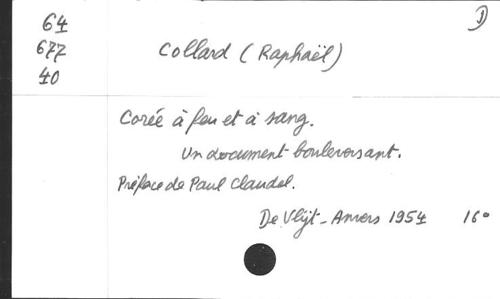 64
677
40
D
Collard (Raphaël)
Corée à feu et à sang.
Un document bouleversant.
Préface de Paul Claudel.
De Vlijt - Anvers 1954 16°